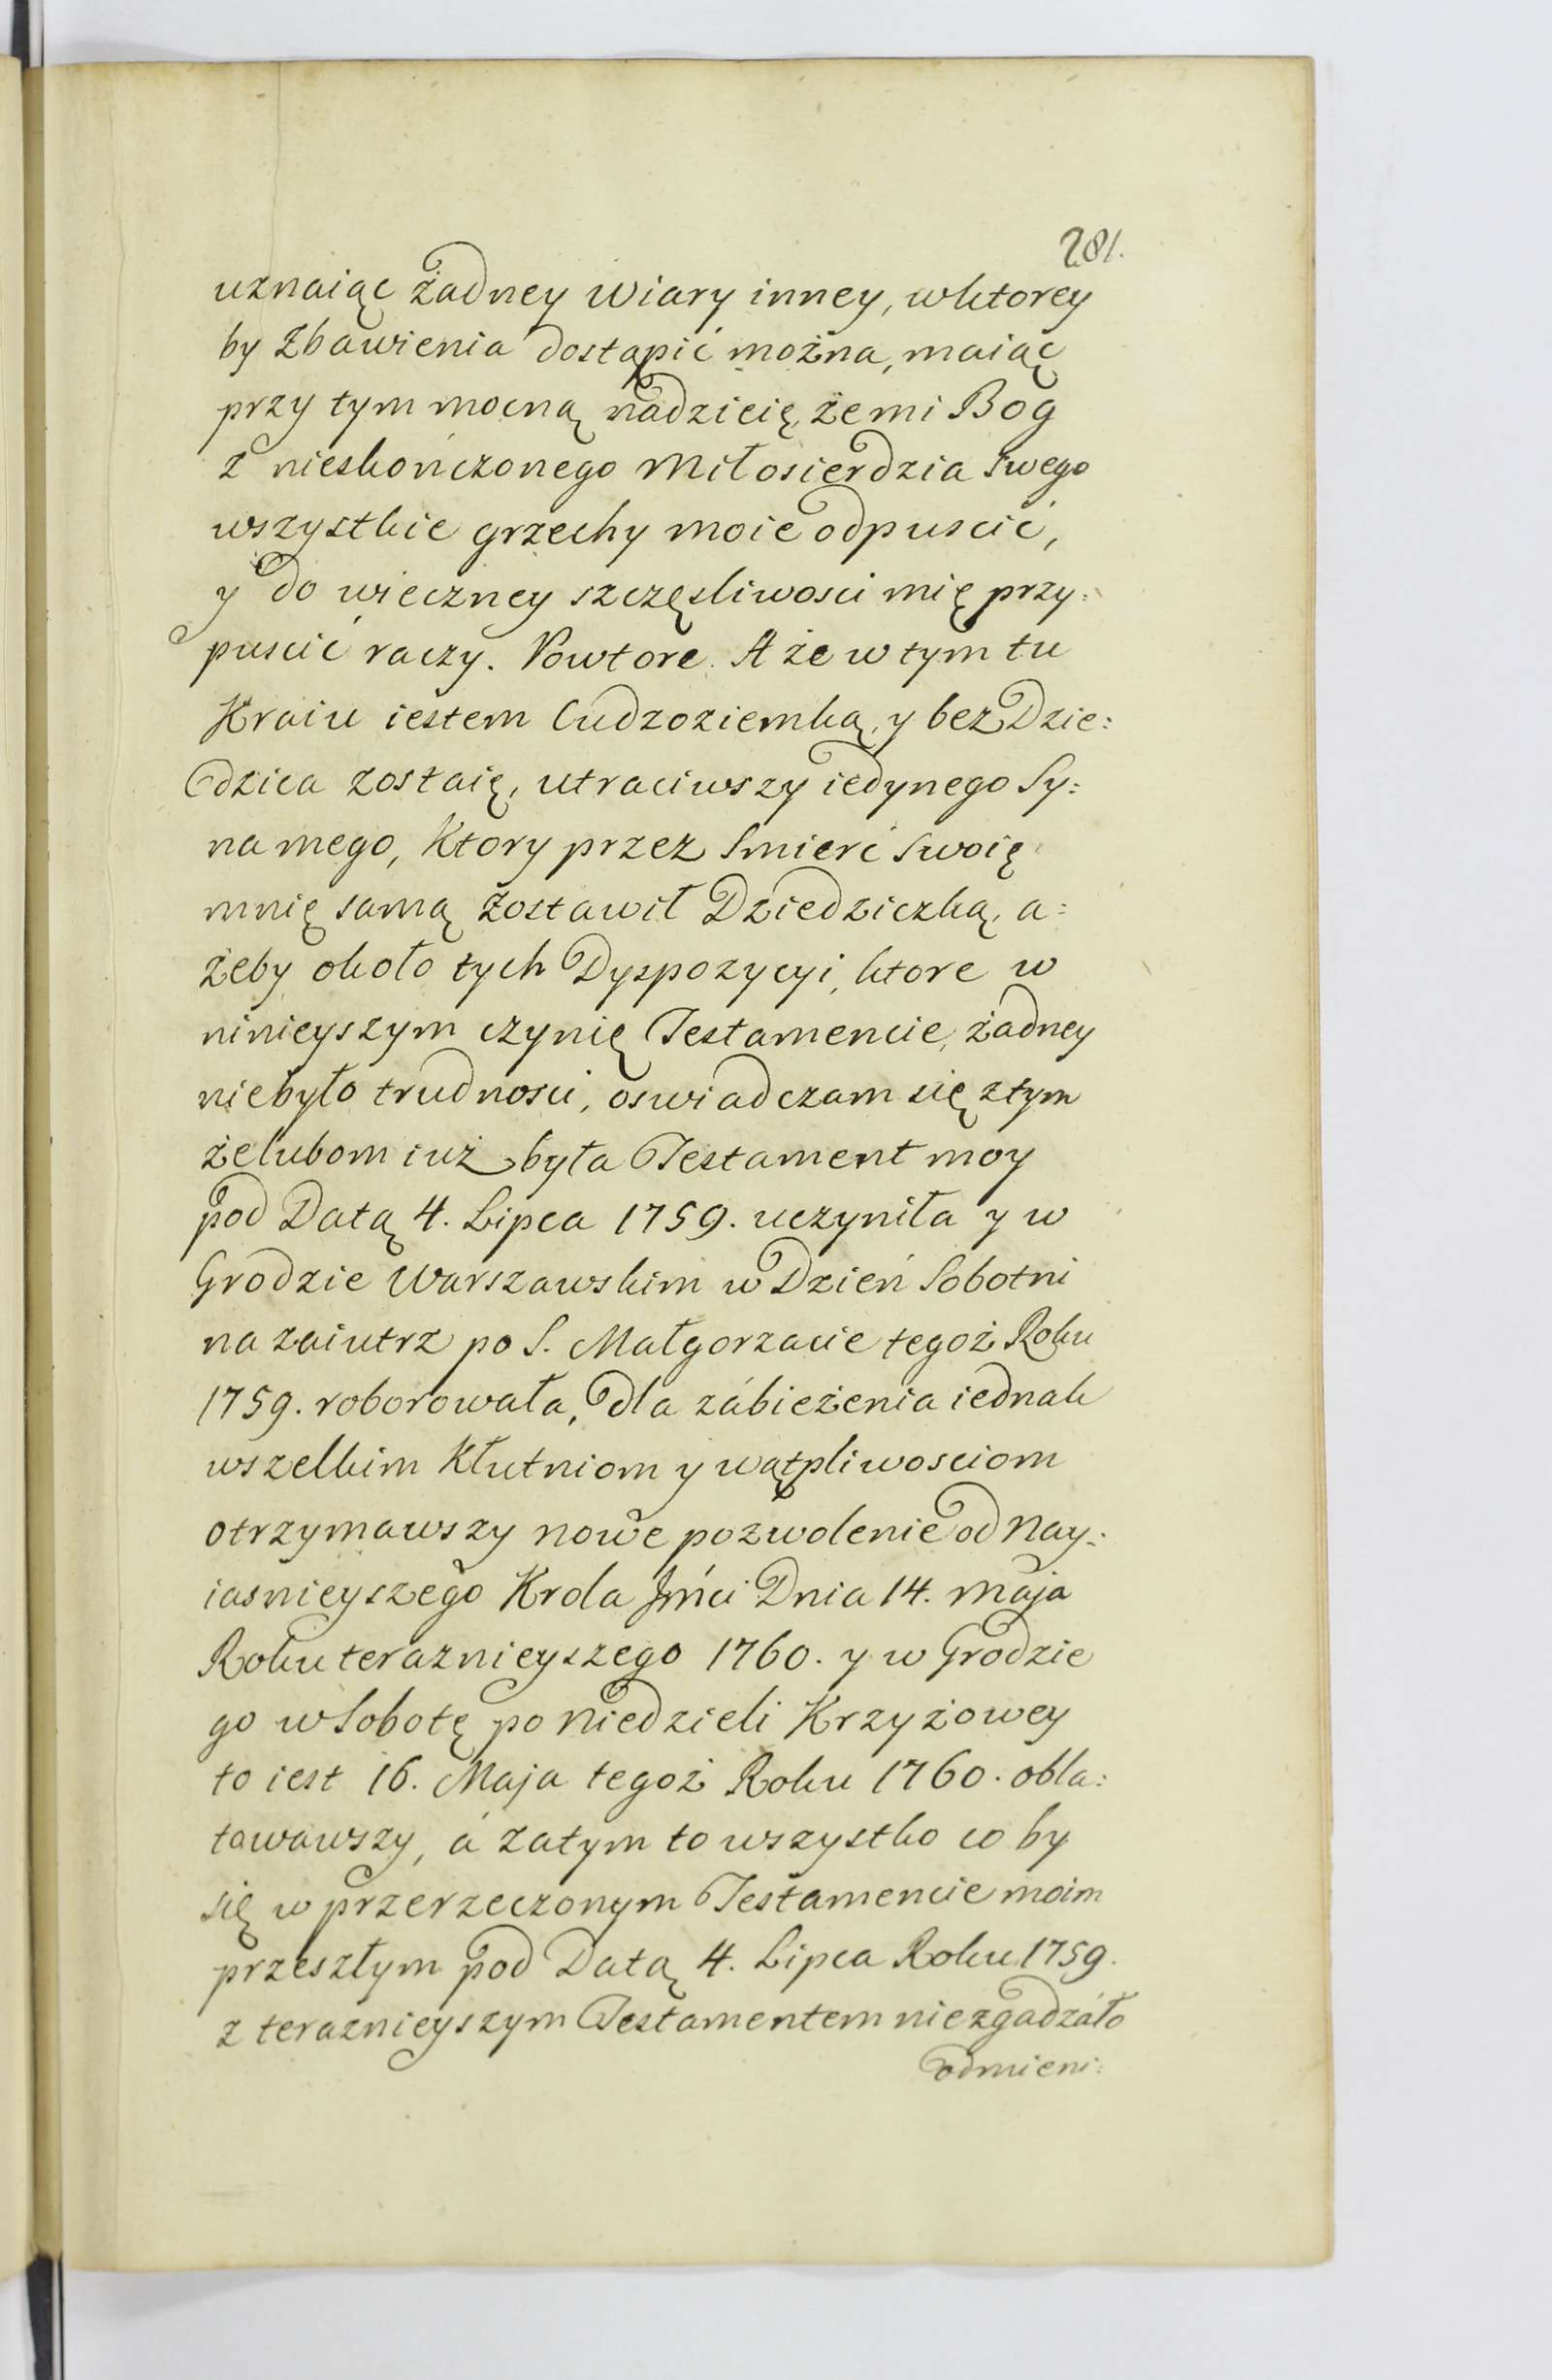 281.
uznaiąc żadney Wiary inney, wktorey
by Zbawienia dostąpić można, maiąc
przy tym mocną nadzieię, żemi Bog
z nieskończonego Miłosierdzia Swego
wszystkie grzechy moie odpuscić,
y do wieczney szczęsliwosci mię przy:
puscić raczy. Powtore. A że w tym tu
Kraiu iestem Cudzoziemką, y bez Dzie:
dzica zostaię, utraciwszy iedynego Sy:
na mego, Ktory przez Smierć Swoię
mnię samą zostawił Dziedziczką, a:
żeby około tych Dyspozycyi, ktore w
ninieyszym czynię Testamencie, żadney
niebyło trudnosci, oswiadczam się ztym
żelubom iuż była Testament moy
pod Datą 4. Lipca 1759. uczyniła y w
Grodzie Warszawskim w Dzień Sobotni
na zaiutrz po S. Małgorzacie tegoż Roku
1759. roborowała, dla zábieżenia iednak
wszelkim Kłutniom y wątpliwosciom
otrzymawszy nowe pozwolenie od Nay:
iasnieyszego Krola Jmci Dnia 14. Maja
Roku teraznieyszego 1760. y w Grodzie
go wSobotę po Niedzieli Krzyżowey
to iest 16. Maja tegoż Roku 1760. obla:
towawszy, á zatym to wszystko co by
się w przerzeczonym Testamencie moim
przeszłym pod Datą 4. Lipca Roku 1759.
z teraznieyszym Testamentem niezgadzáło
odmieni: